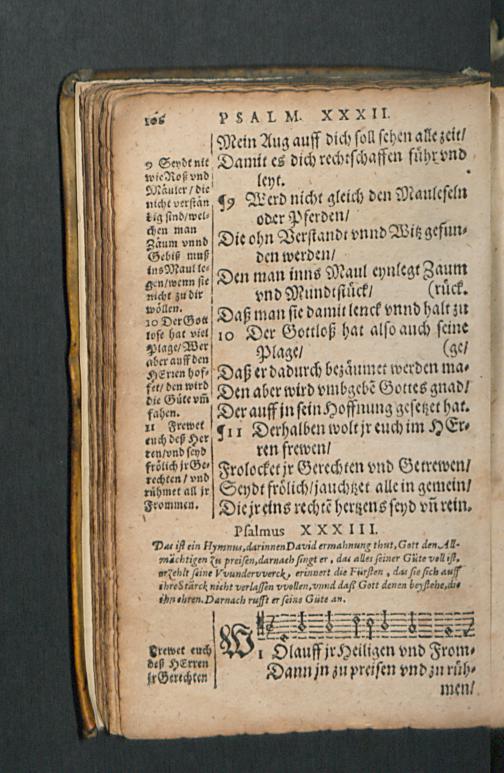 106 PSALM. XXXII.
9 Seydt nit
wie Roß vnd
Mäuler / die
nicht verstän
dig sind/wel-
chen man
Zäum vnnd
Gebiß muß
ins Maul le-
gen/wenn sie
nicht zu dir
wöllen.
10 Der Gott
lose hat viel
Plage/Wer
aber auff den
HErren hof-
fet/den wird
die Güte vm̃
fahen.
11 Frewet
euch deß Her
ren/vnd seyd
frölich jr Ge-
rechten / vnd
rühmet all jr
Frommen.
Mein Aug auff dich soll sehen alle zeit/
Damit es dich rechtschaffen führ vnd
leyt.
¶9 Werd nicht gleich den Mauleseln
oder Pferden/
Die ohn Verstandt vnnd Witz gefun-
den werden/
Den man inns Maul eynlegt Zaum
vnd Mundtstück/ (rück.
Daß man sie damit lenck vnnd halt zu
10 Der Gottloß hat also auch seine
Plage/ (ge/
Daß er dadurch bezäumet werden ma-
Den aber wird vmbgebẽ Gottes gnad/
Der auff jn sein Hoffnung gesetzet hat.
¶11 Derhalben wolt jr euch im HEr-
ren frewen/
Frolocket jr Gerechten vnd Getrewen/
Seydt frölich/jauchtzet alle in gemein/
Die jr eins rechtẽ hertzens seyd vñ rein.
Psalmus XXXIII.
Das ist ein Hymnus, darinnen David ermahnung thut, Gott den All-
mächtigen zu preisen, darnach singt er, das alles seiner Güte voll ist,
erzehlt seine VVundervverck, erinnert die Fürsten, das sie sich auff
ihre Stärck nicht verlassen vvollen, vnnd daß Gott denen beystehe, die
ihn ehren. Darnach rufft er seine Güte an.
Frewet euch
deß HErren
jr Gerechten
W
1 Olauff jr Heiligen vnd From-
Dann jn zu preisen vnd zu rüh-
men/